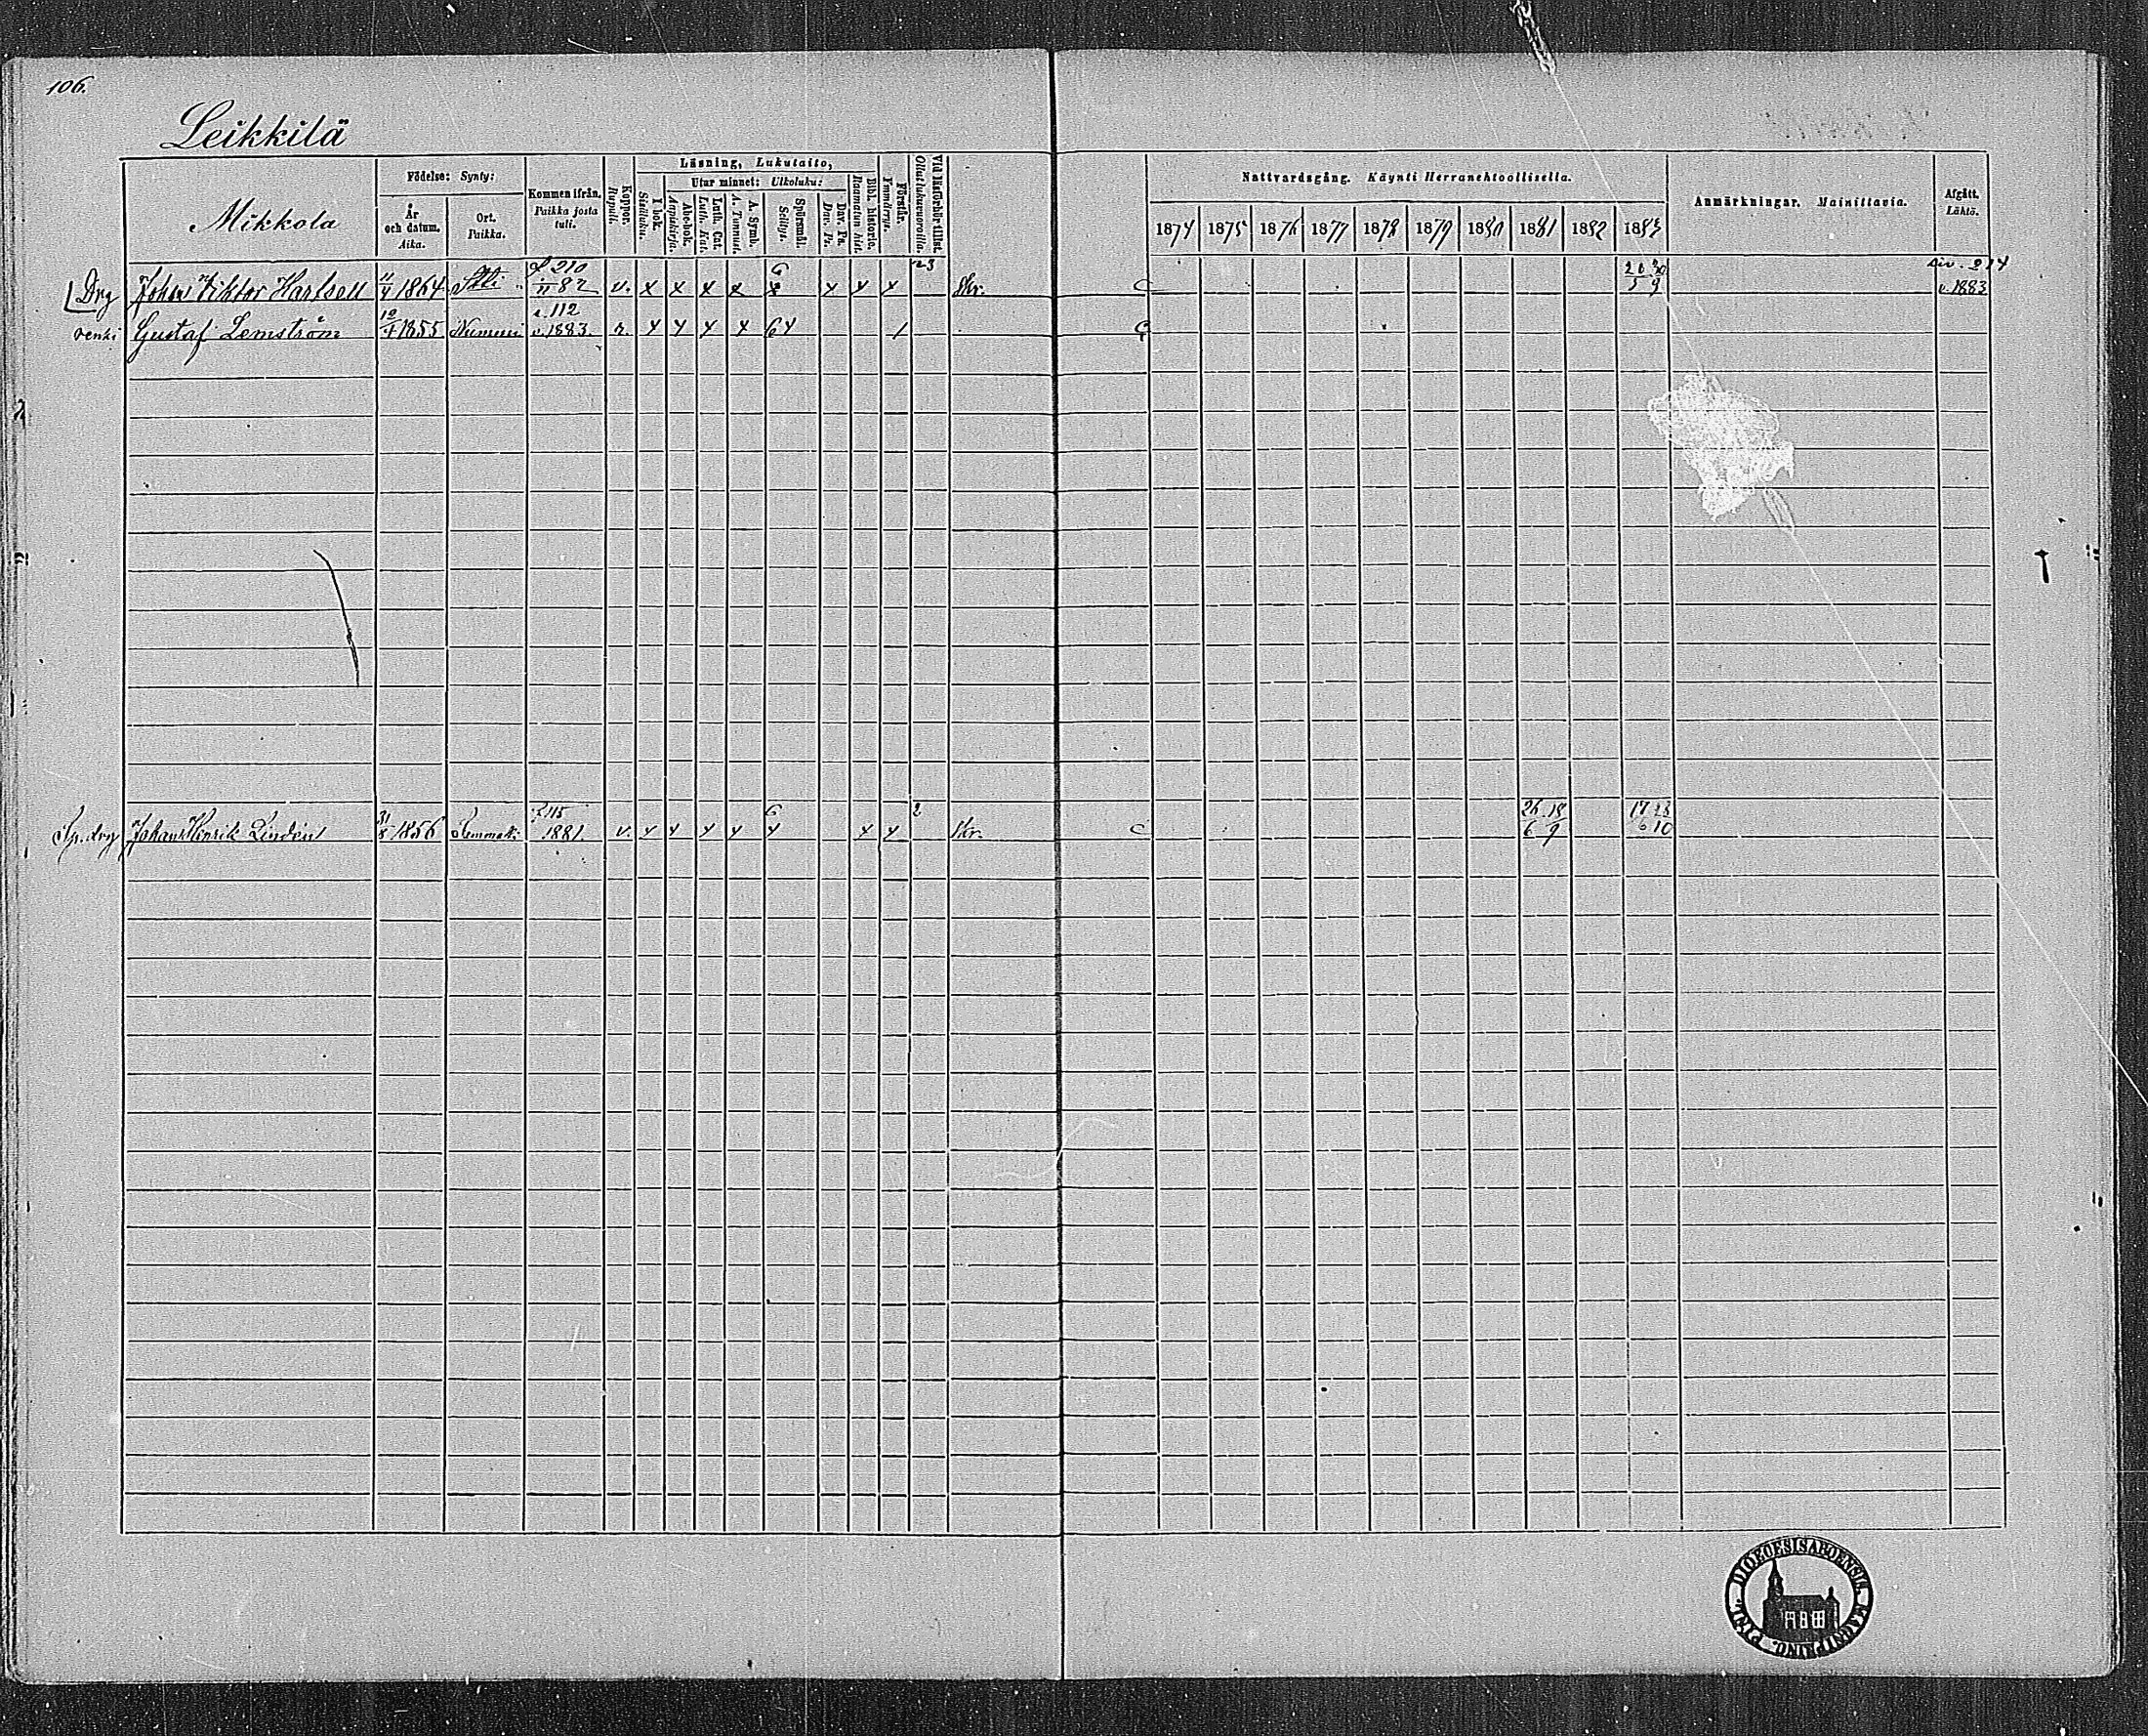 106.
Leikkilä
Mikkola
Födelse: Synty:
År och datum. Aika.
Ort. Paikka.
Kommen ifrån. Paikka josta tuli.
Koppor. Rupuli.
Läsning, Lukutaito,
I bok. Sisäluku.
Utur minnet: Ulkoluku:
Abc-bok. Aapiskirja.
Luth. Cat. Luth. Kat.
A. Symb. A. Tunnust.
Spörsmål. Selitys.
Dav. Ps. Dav. Ps.
Bibl. historia. Raamatun hist.
Förstår. Ymmärrys.
Vid läsförhör tillst. Ollut lukuvuoroilla.
Nattvardsgång. Käynti Herranehtoollisella.
1874 1875 1876 1877 1878 1879 1880 1881 1882 1883
Anmärkningar. Mainittavia.
Afgått. Lähtö.
Drg Johan Viktor Karlsell 11/4 1864 f 210 11 82 v. x x x x 6 x x x x 23 Skr. C siv. 214 v. 1883
renki Gustaf Lemström 12/4 1855 Nummi s. 112 v. 1883. r. x x x x 6 x /
Sp. drg Johan Henrik Lindén 31/8 1856 f. 115 1881. v. x x x x 6 x x x 2 Skr. C 26.18 6 9 17 23 6 10
DIOECESIS ABOENSIS